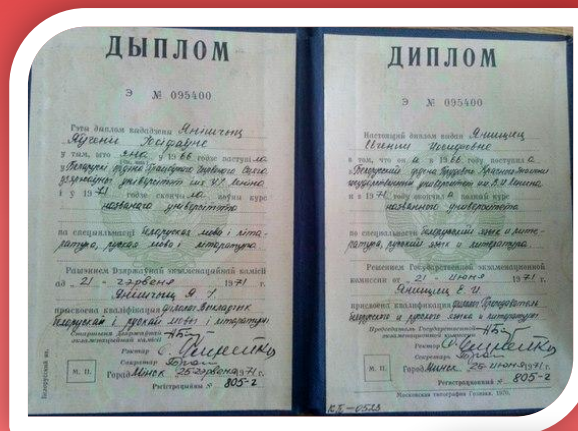 ДЫПЛОМ
Э № 095400
Гэты дыплом выдадзены Янішчыц
Яўгені Іосіфаўне
у тым, што яна у 1966 годзе паступіла
у Беларускі ордэна Працоўнага Чырвонага Сцяга
дзяржаўны універсітэт імя У.І. Леніна
і ў 1971 годзе скончыла поўны курс
названага універсітэта
па спецыяльнасці беларуская мова і літа-
ратура, руская мова і літаратура
Рашэннем Дзяржаўнай экзаменацыйнай камісіі
ад 21 - чэрвеня 1971 г.
Янішчыц Я. І.
прысвоена кваліфікацыя філолаг. Выкладчык
беларускай і рускай мовы і літаратуры
Старшыня Дзяржаўнай
экзаменацыйнай камісіі
Рэктар
Сакратар
М. П. Горад Мінск 25 чэрвеня 1971 г.
Рэгістрацыйны № 805-г
ДИПЛОМ
Э № 095400
Настоящий диплом выдан Янищиц
Евгении Иосифовне
в том, что она в 1966 году поступила
в Белорусский ордена Трудового Красного Знамени
государственный университет им. В.И. Ленина
и в 1971 году окончила полный курс
названного университета
по специальности белорусский язык и лите-
ратура, русский язык и литература
Решением Государственной экзаменационной
комиссии от 21 - июня 1971 г.
Янищиц Е. И.
присвоена квалификация филолог. Преподаватель
белорусского и русского языка и литературы
Председатель Государственной
экзаменационной комиссии
Ректор
Секретарь
М. П. Город Минск 25 июня 1971 г.
Регистрационный № 805-г
Московская типография Гознака. 1970.